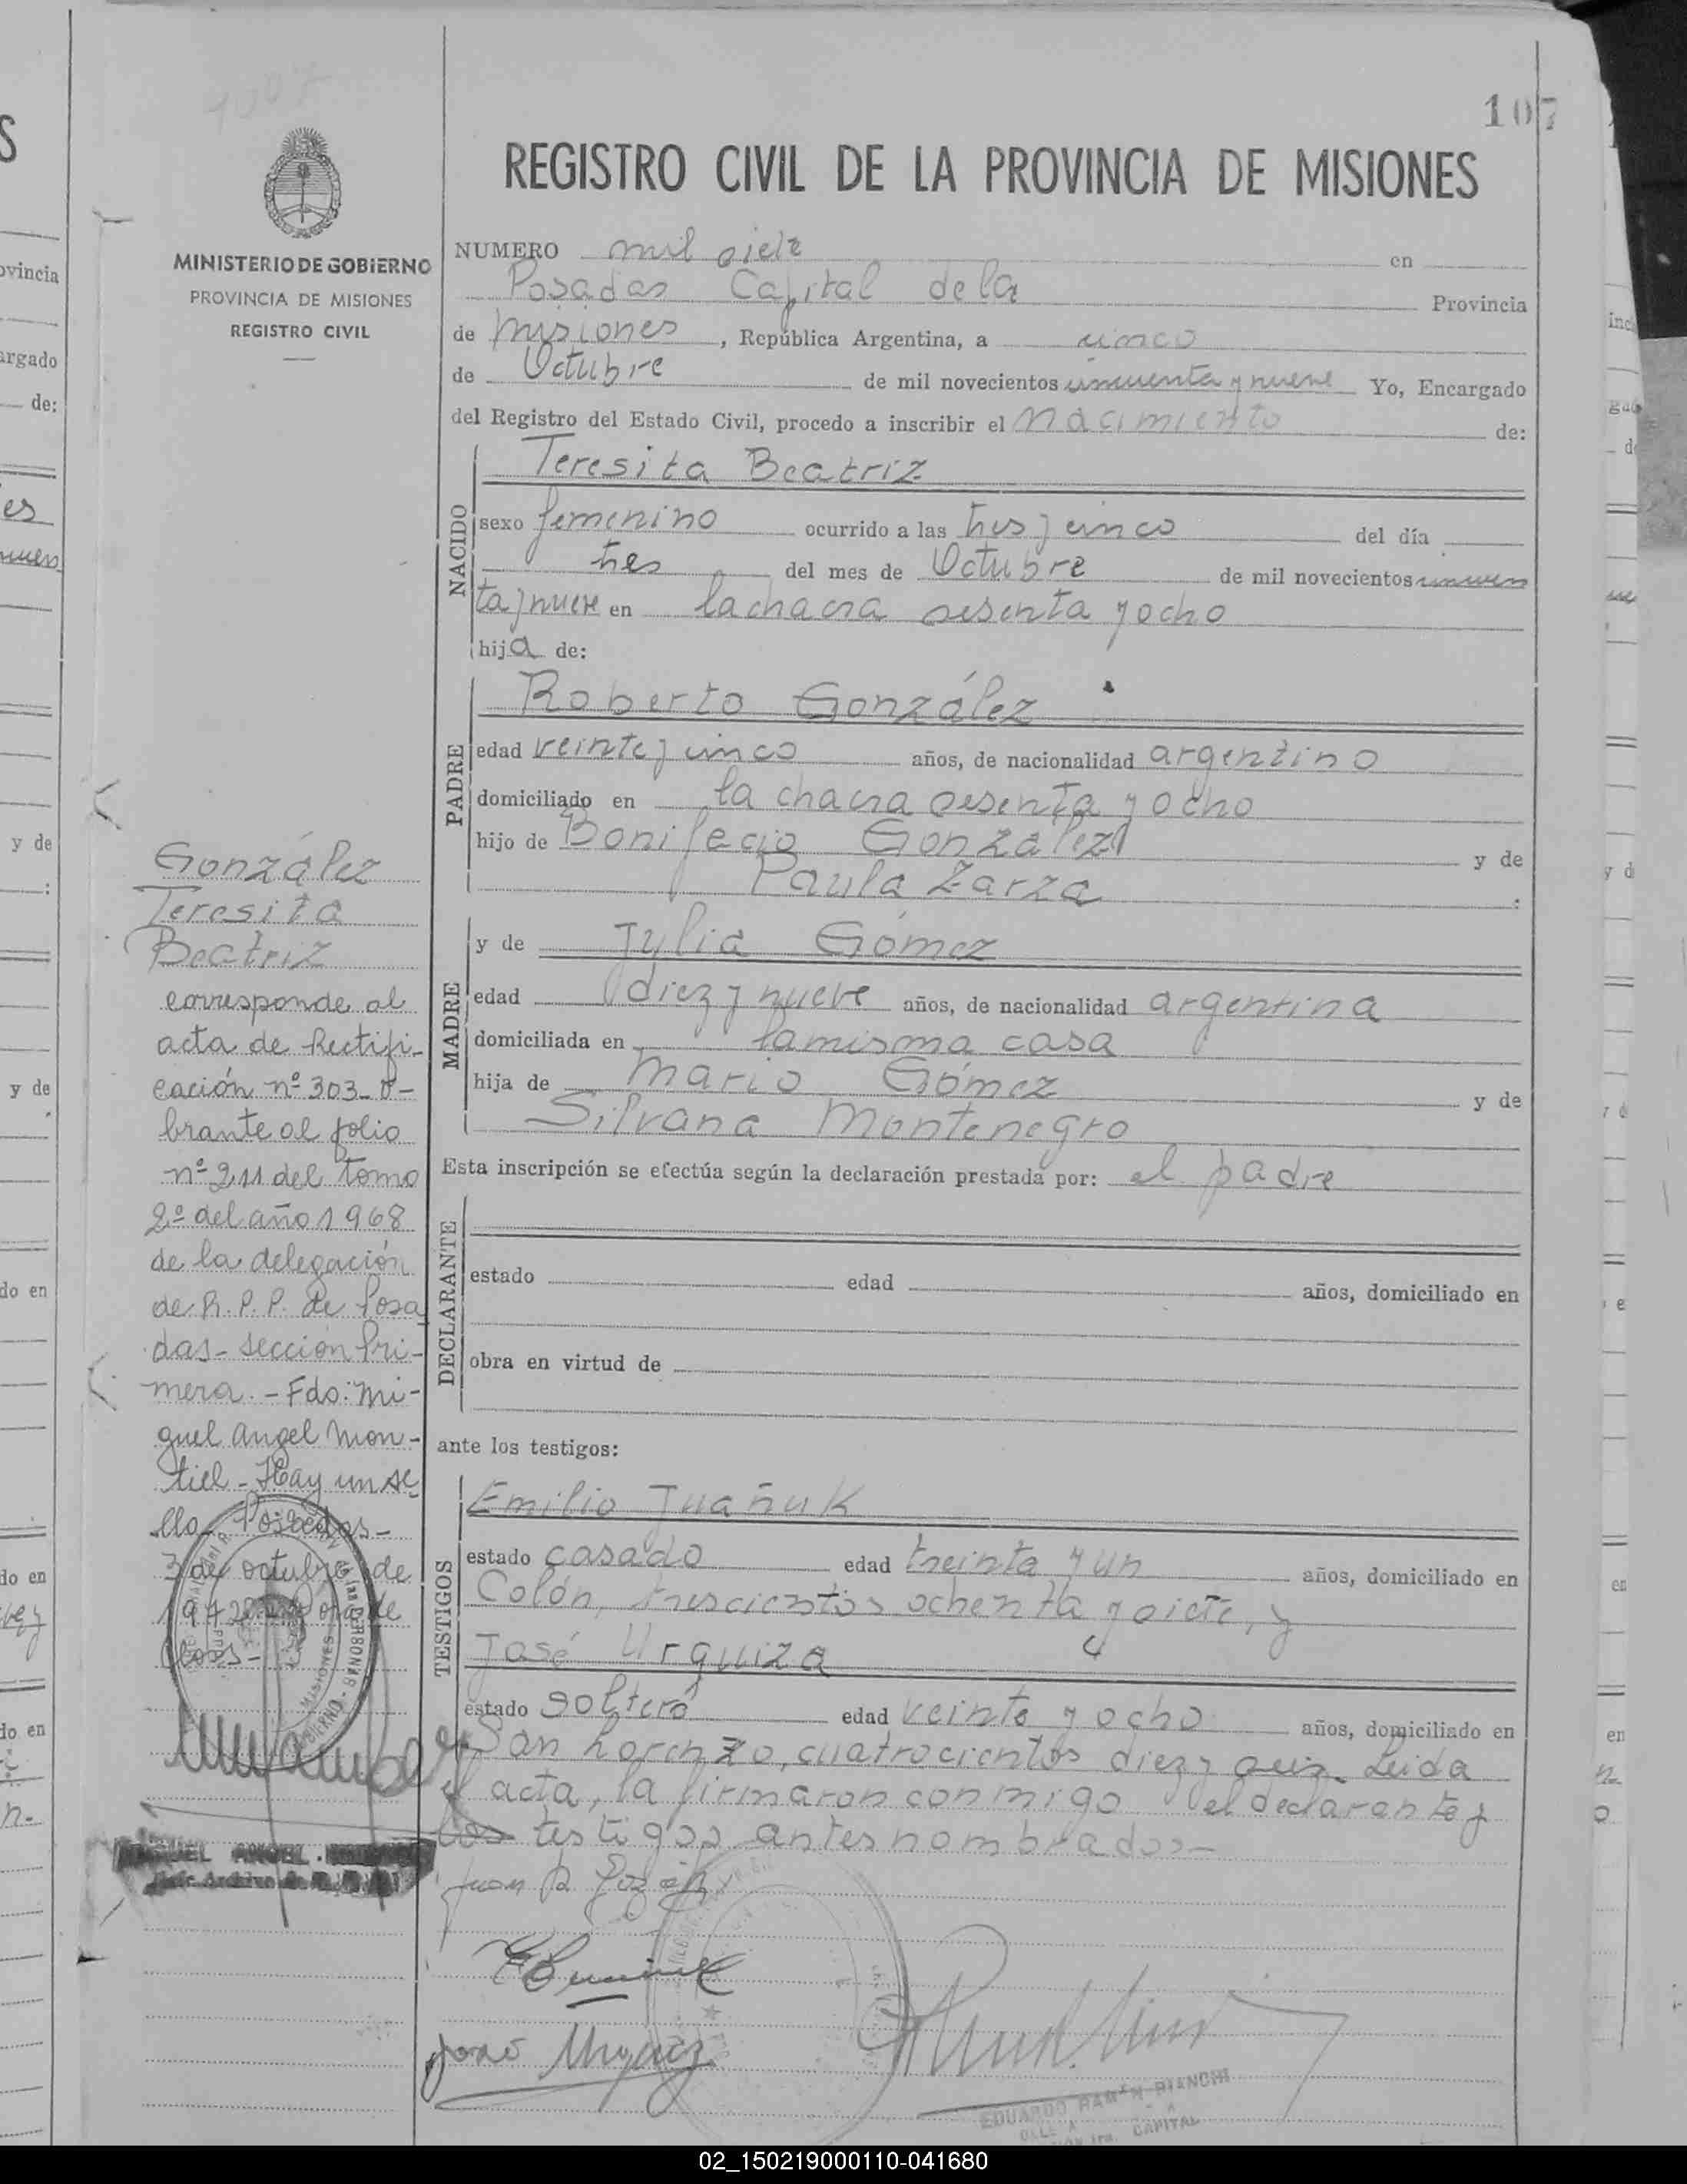 107
1007
REGISTRO CIVIL DE LA PROVINCIA DE MISIONES
MINISTERIO DE GOBIERNO
PROVINCIA DE MISIONES
REGISTRO CIVIL
NUMERO mil siete en
Posadas Capital de la Provincia
de Misiones, República Argentina, a cinco
de Octubre de mil novecientos cincuenta y nueve Yo, Encargado
del Registro del Estado Civil, procedo a inscribir el Nacimiento de:
NACIDO
Teresita Beatriz
sexo femenino ocurrido a las tres y cinco del día
tres del mes de Octubre de mil novecientos cincuen
ta y nueve en la chacra sesenta y ocho
hija de:
PADRE
Roberto González
edad veinte y cinco años, de nacionalidad argentino
domiciliado en la chacra sesenta y ocho
hijo de Bonifacio González y de
Paula Zarza :
MADRE
y de Julia Gómez
edad diez y nueve años, de nacionalidad argentina
domiciliada en la misma casa
hija de Mario Gómez y de
Silvana Montenegro
Esta inscripción se efectúa según la declaración prestada por: el padre
DECLARANTE
estado edad años, domiciliado en
obra en virtud de
ante los testigos:
TESTIGOS
Emilio Juañuk
estado casado edad treinta y un años, domiciliado en
Colón, trescientos ochenta y siete, y
José Urquiza
estado soltero edad veinte y ocho años, domiciliado en
San Lorenzo, cuatrocientos diez y seis. Leida
el acta, la firmaron conmigo el declarante y
los testigos antes nombrados-
José Urquiza
EDUARDO RAMÓN BIANCHI
CAPITAL
González
Teresita
Beatriz
corresponde al
acta de Rectifi-
cación nº 303_o-
brante al folio
nº 211 del tomo
2º del año 1968
de la delegación
de R. P. P. de Posa
das- sección Pri-
mera. - Fdo: Mi-
guel Angel Mon-
tiel - Hay un se
llo Posadas-
3 de octubre de
MIGUEL ANGEL
02_150219000110-041680